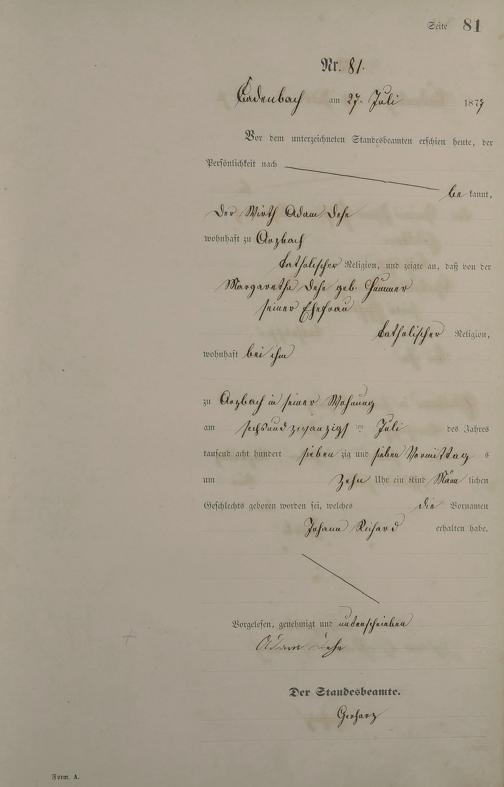 Seite 81
Nr. 81.
Cadenbach am 27. Juli 1877
Vor dem unterzeichneten Standesbeamten erschien heute, der
Persönlichkeit nach
be kannt,
der Wirth Adam Dehe
wohnhaft zu Arzbach
katholischer Religion, und zeigte an, daß von der
Margaretha Dehe geb. Hümmer
seiner Ehefrau
katholischer Religion,
wohnhaft bei ihm
zu Arzbach in seiner Wohnung
am sechsundzwanzigst en Juli des Jahres
tausend acht hundert sieben zig und sieben Vormittag s
um zehn Uhr ein Kind Männ lichen
Geschlechts geboren worden sei, welches die Vornamen
Johann Richard erhalten habe.
Vorgelesen, genehmigt und unterschrieben
Adam Dehe
Der Standesbeamte.
Gerharz
Form. A.